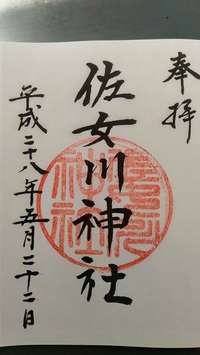 奉拝
佐女川神社
平成二十八年五月二十二日